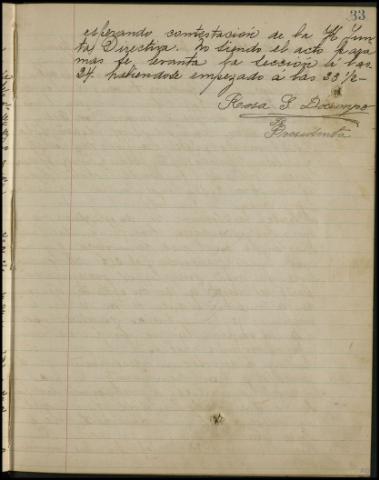 33
esperando contestación de la H. Jun
ta Directiva. No siendo el acto para
mas se levanta la sección a las
24. habiendose empezado a las 22 1/2-
Rosa G.
Presidenta